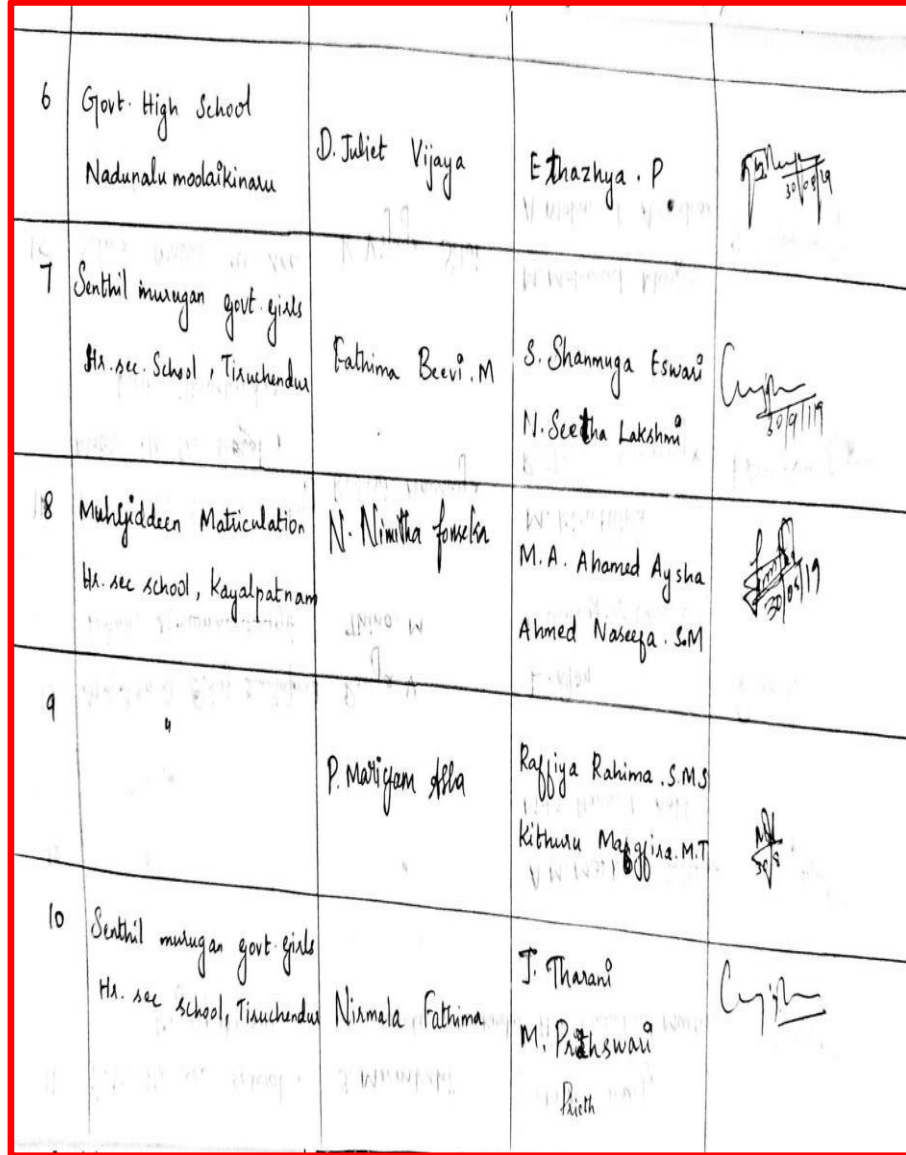 6
Govt. High School
Nadunalu moolaikinaru
D. Juliet Vijaya
Ethazhya. P
30/08/19
7
Senthil murugan govt. girls
Hr. sec. School, Tiruchendur
Fathima Beevi. M
S. Shanmuga Eswari
N. Seetha Lakshmi
30/9/19
8
Muhyiddeen Matriculation
Hr. sec school, Kayalpatnam
N. Nimitha fonseka
M.A. Ahamed Aysha
Ahmed Naseefa. S.M
30/08/19
9
"
P. Mariyam
Raffiya Rahima. S.M.S
Kithuru. M.T
30/8
10
Senthil murugan govt. girls
Hr. sec school, Tiruchendur
Nirmala Fathima
J. Tharani
M. Prithswari